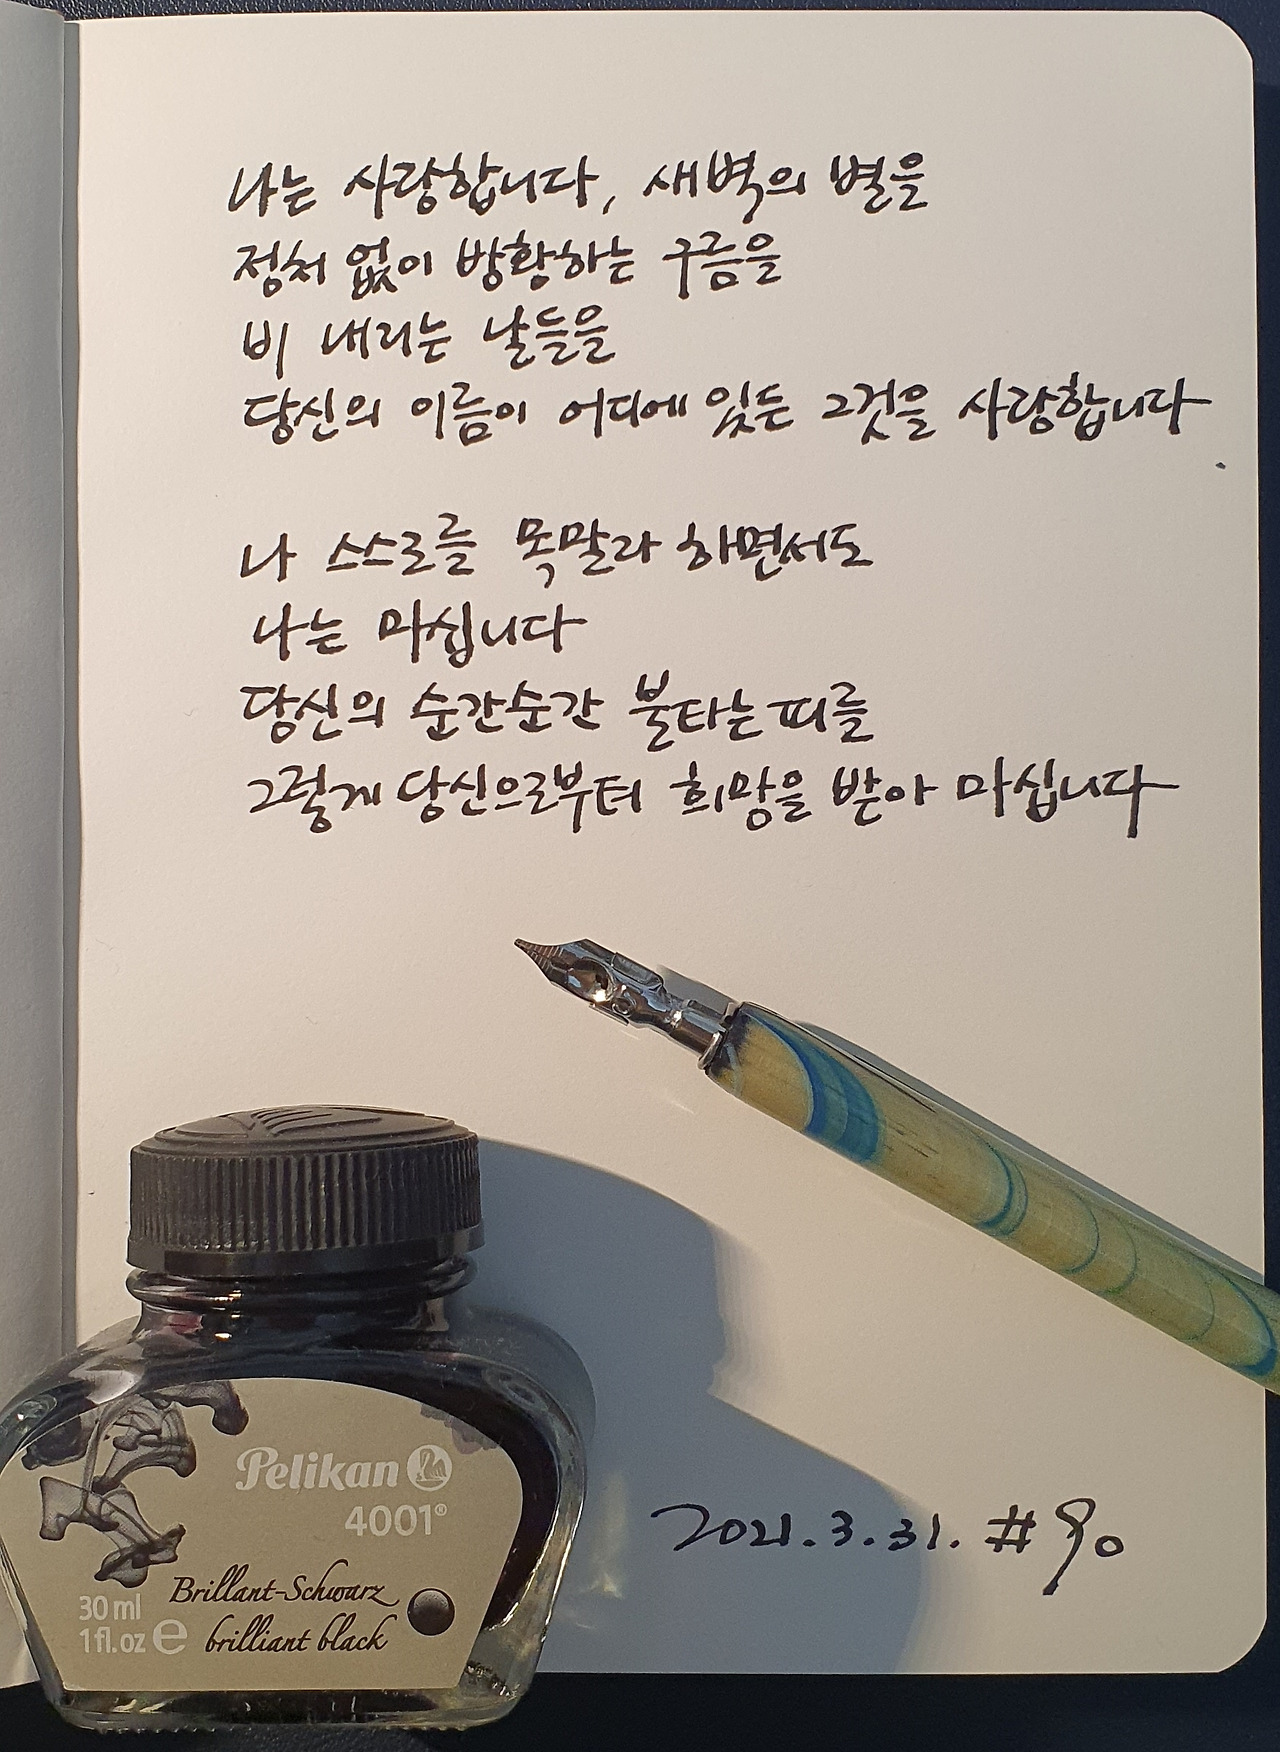 나는 사랑합니다, 새벽의 별을
정처 없이 방황하는 구름을
비 내리는 날들을
당신의 이름이 어디에 있든 그것을 사랑합니다.
나 스스로를 목말라 하면서도
나는 마십니다
당신의 순간순간 불타는 피를
그렇게 당신으로부터 희망을 받아 마십니다
Pelikan
4001®
Brillant-Schwarz
brilliant black
30 ml
1 fl.oz e
2021.3.31. #90